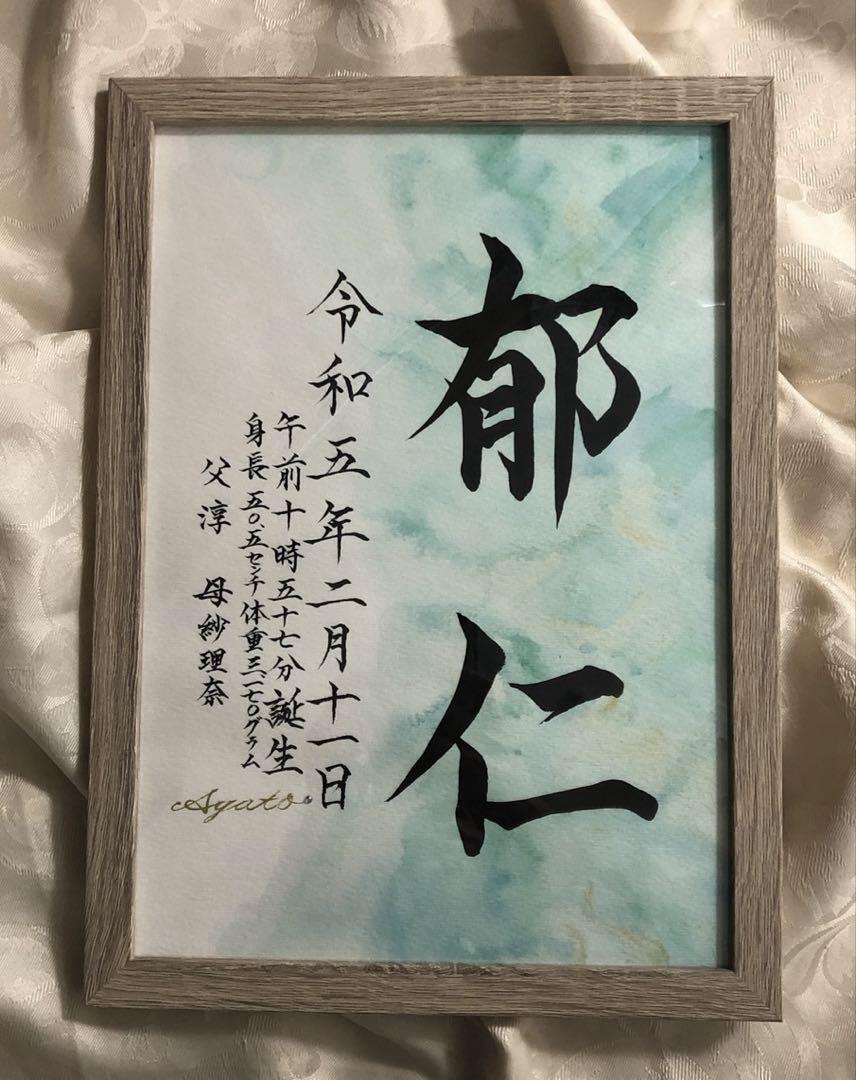 郁仁
令和五年二月十一日
午前十時五十七分誕生
身長五〇.五センチ体重三、一七〇グラム
父淳 母紗理奈
Ayato